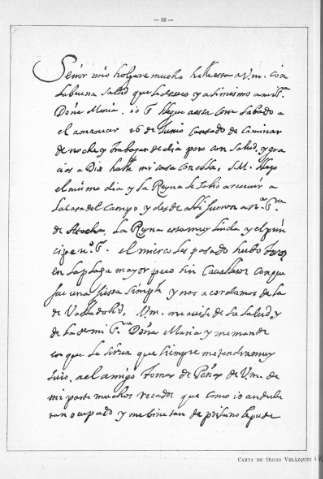 — 88 —
Señor mio holgare mucho halle esta a V.m. con
la buena salud que la deseo y asimismo a mi S.ª
Doña Maria. io S.r llegue a esta Corte Sabado a
el amanecer 26 de Junio cansado de caminar
de noche y trabajar de dia pero con salud y gra
cias a Dios halle mi casa con ella, S.M. llego
el mismo dia y la Reyna le salio a recivir a
la casa del Campo y desde alli fueron a n.ª S.ra
de Atocha, la Reyna esta muy linda y el prin
cipe n.º S.r el miercoles pasado hubo toros
en la plaça mayor pero sin Cavalleros conque
fue una fiesta simple y nos acordamos de la
de Valladolid, V.m. me avise de su salud y
de la de mi S.ra Doña Maria y me mande
en que le sirva que siempre me tendra muy
suio, a el amigo Tomas de Peñas de V.m. de
mi parte muchos recados que como io anduve
tan ocupado y me vine tan de prisa no le pude
CARTA DE DIEGO VELÁZQUEZ